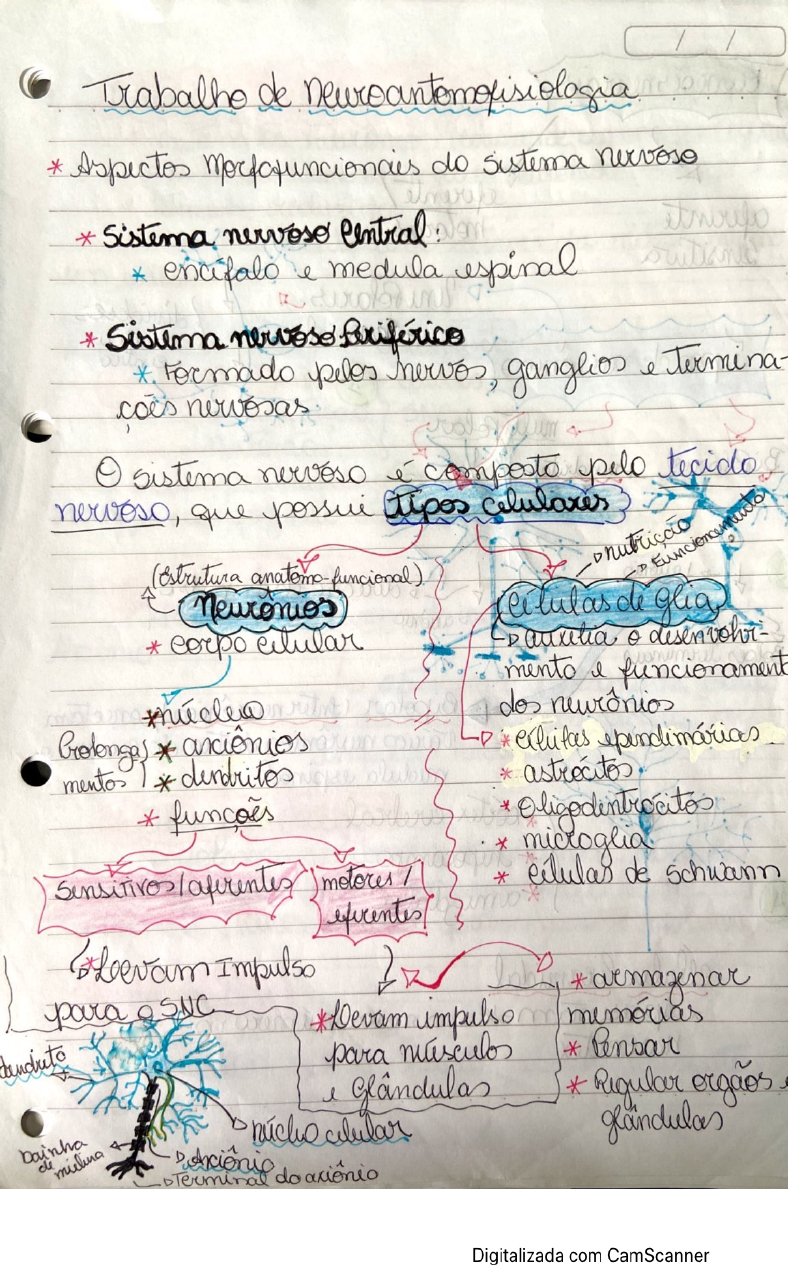 / /
Trabalho de Neuroantomofisiologia
* Aspectos Morfofuncionais do Sistema nervoso
* Sistema nervoso Central:
* encéfalo e medula espinal
* Sistema nervoso Periférico
* Formado pelos nervos, ganglios e Termina-
ções nervosas.
O sistema nervoso é composto pelo tecido
nervoso, que possui tipos celulares
(Estrutura anatomo-funcional)
Neurônios
* corpo celular
* núcleo
Prolonga
mentos
* axiônios
* dendritos
* funções
Sensitivos/aferentes
motores/
eferentes
* Levam Impulso
para o SNC
* Levam impulso
para músculos
e Glândulas
nutrição
Funcionamento
Células de glia
auxilia o desenvolvi-
mento e funcionament
dos neurônios
* células ependimárias
* astrócitos
* Oligodentrócitos
* microglia
* células de Schwann
* armazenar
memórias
* Pensar
* Regular orgãos e
glândulas
dendrito
núcleo celular
Bainha
de mielina
Axiônio
Terminal do axiônio
Digitalizada com CamScanner